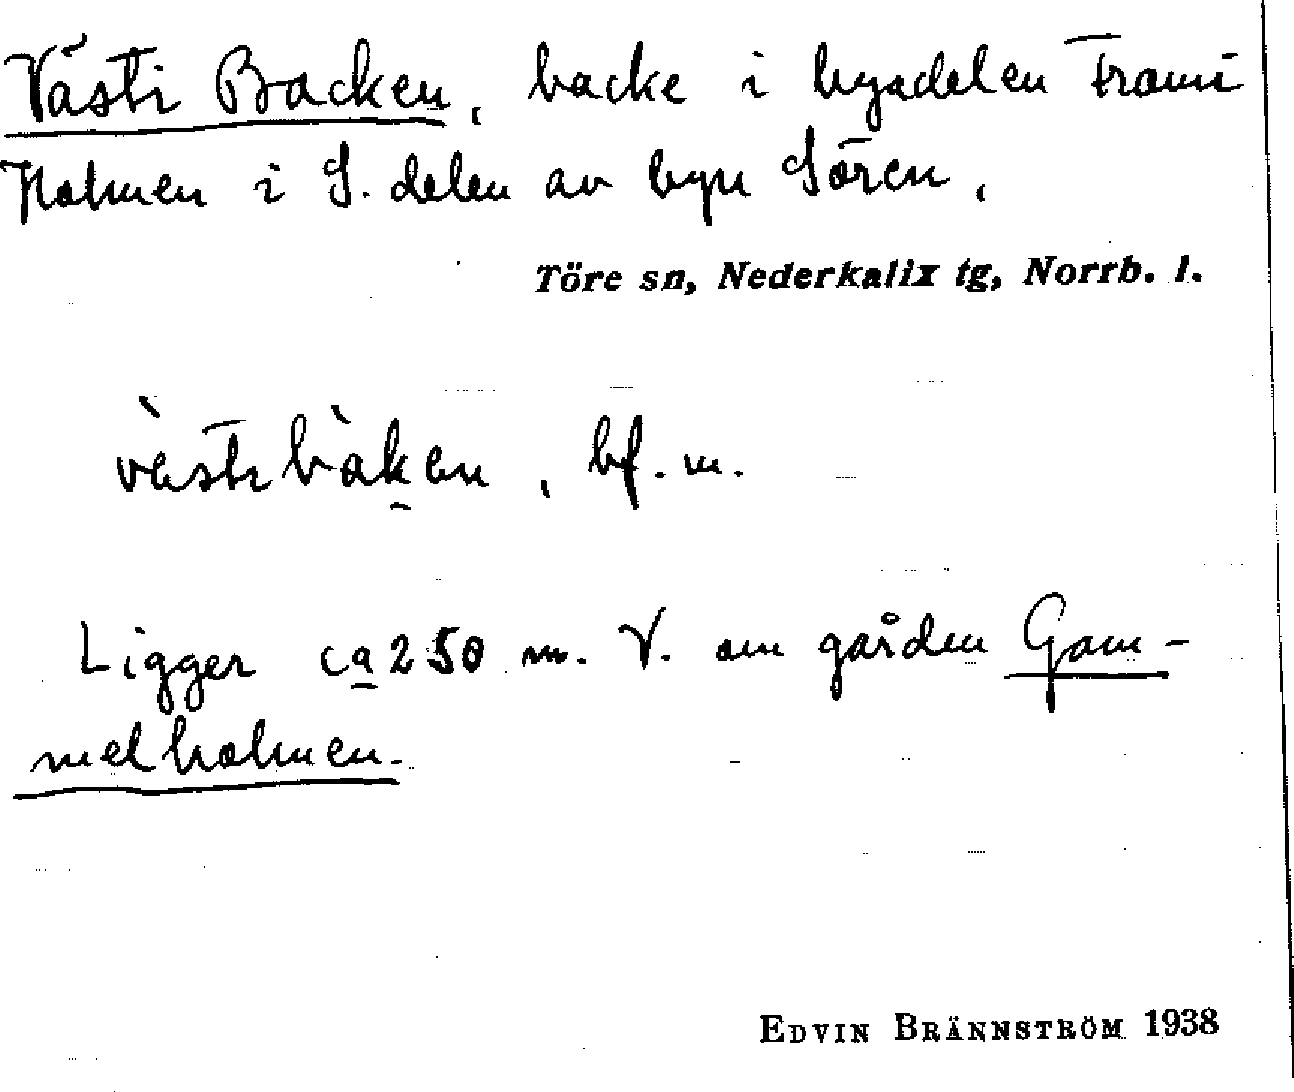 Västi Backen, backe i byadelen Frami
Holmen i S. delen av byn Sören.
Töre sn, Nederkalix tg, Norrb. l.
vèsti bàken, bf. m.
Ligger ca 250 m. V. om gården Gam-
melholmen.
EDVIN BRÄNNSTRÖM 1938